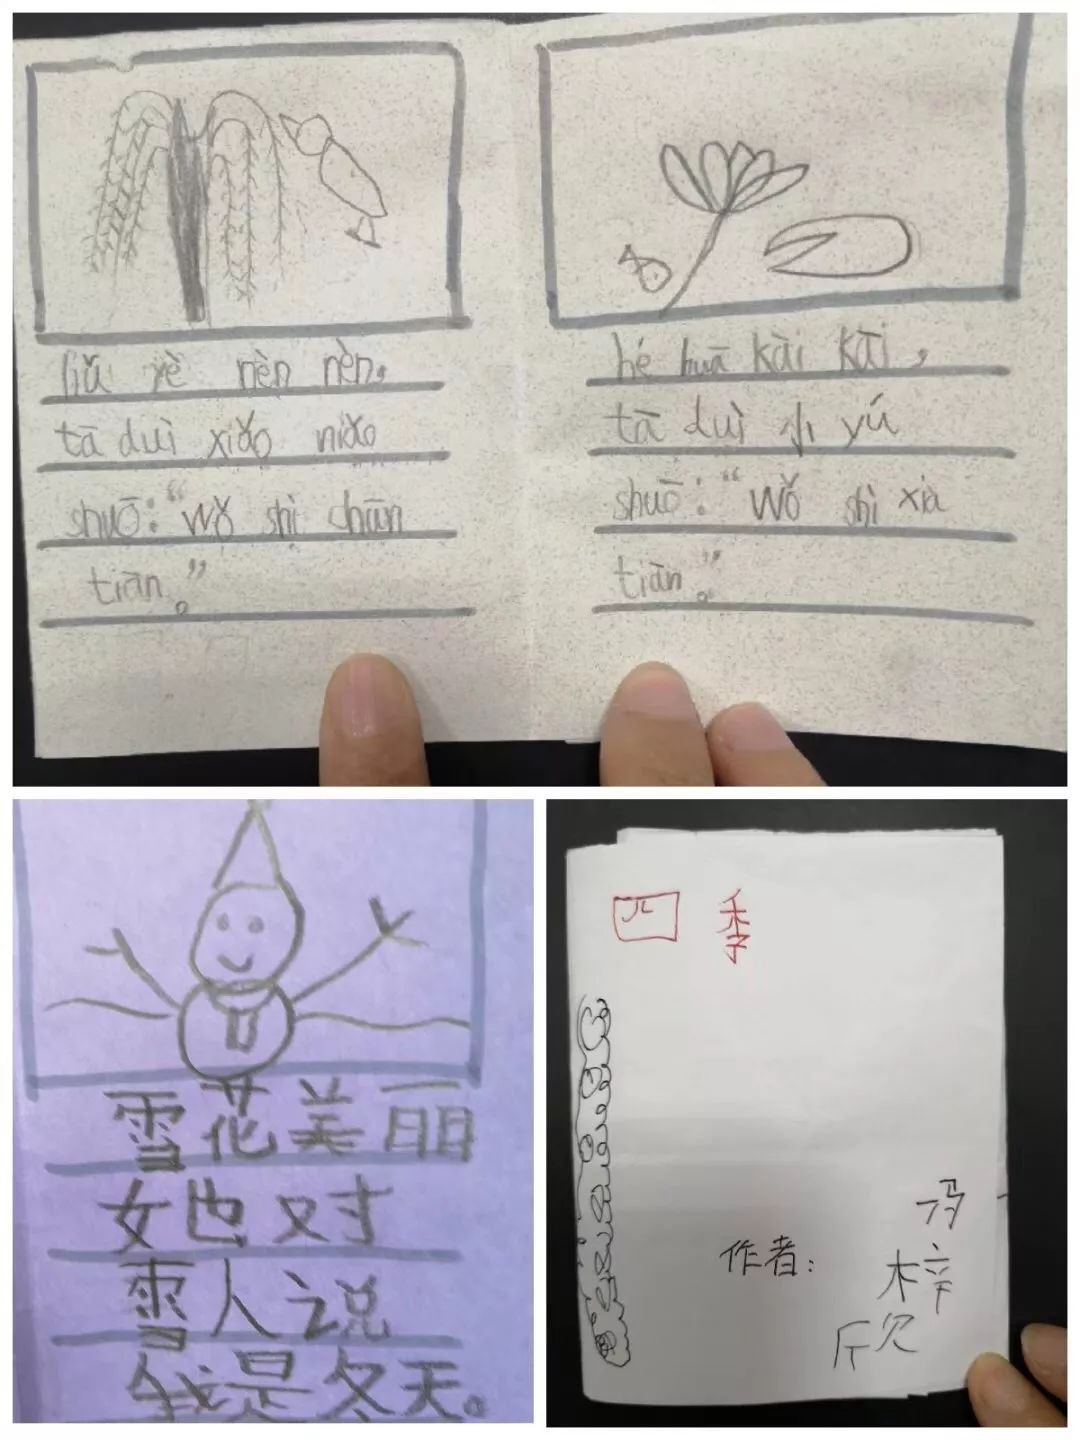 liǔ yè nèn nèn,
tā duì xiǎo niǎo
shuō:“wǒ shì chūn
tiān。”
hé huā kāi kāi,
tā duì小yú
shuō:“wǒ shì xià
tiān。”
雪花美丽
她对
雪人说
我是冬天。
四季
作者:
冯
梓
欣